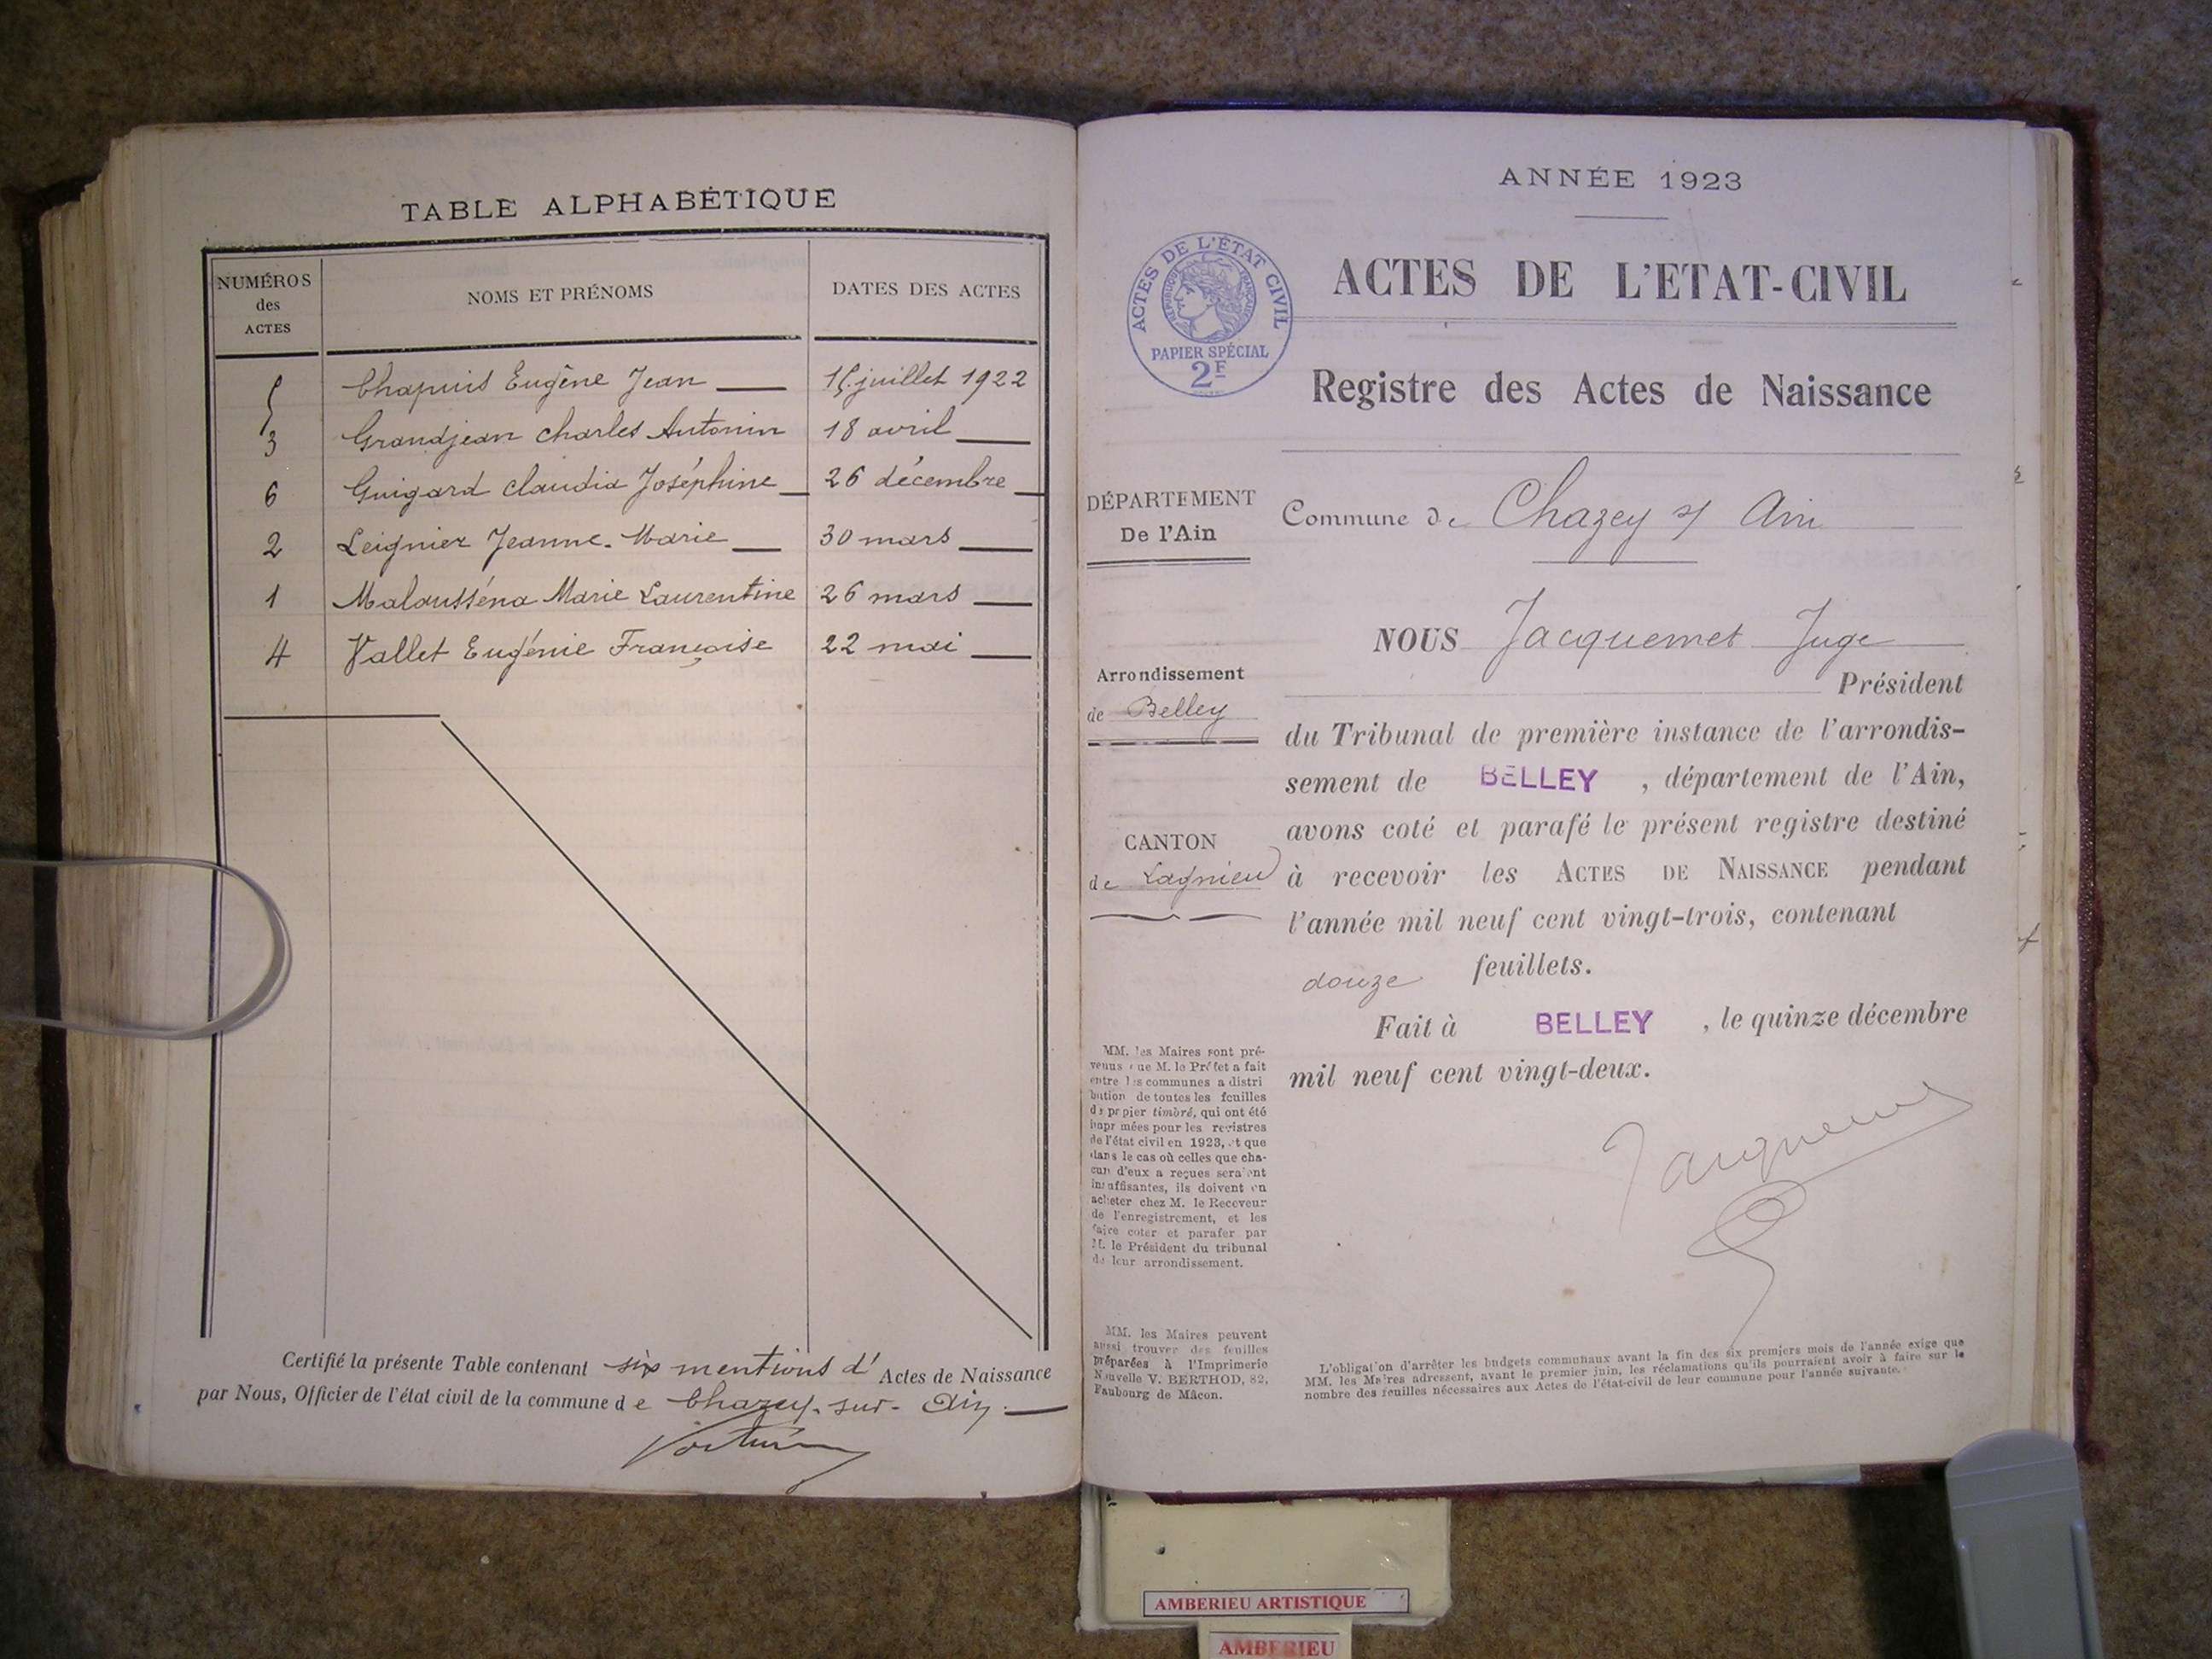 TABLE ALPHABÉTIQUE
NUMÉROS des ACTES NOMS ET PRÉNOMS DATES DES ACTES
5 Chapuis Eugène Jean 15 juillet 1922
3 Grandjean Charles Antonin 18 avril
6 Guigard Claudia Joséphine 26 décembre
2 Leignier Jeanne-Marie 30 mars
1 Malausséna Marie Laurentine 26 mars
4 Vallet Eugénie Françoise 22 mai
Certifié la présente Table contenant six mentions d' Actes de Naissance
par Nous, Officier de l'état civil de la commune de Chazey-sur-Ain
ANNÉE 1923
ACTES DE L'ÉTAT CIVIL
RÉPUBLIQUE FRANÇAISE
PAPIER SPÉCIAL
2F
ACTES DE L'ETAT-CIVIL
Registre des Actes de Naissance
DÉPARTEMENT
De l'Ain
Arrondissement
de Belley
CANTON
de Lagnieu
Commune de Chazey s/ Ain
NOUS Jacquemet Juge
Président
du Tribunal de première instance de l'arrondis-
sement de BELLEY, département de l'Ain,
avons coté et parafé le présent registre destiné
à recevoir les ACTES DE NAISSANCE pendant
l'année mil neuf cent vingt-trois, contenant
douze feuillets.
Fait à BELLEY, le quinze décembre
mil neuf cent vingt-deux.
MM. les Maires sont pré-
venus que M. le Préfet a fait
entre les communes a distri
bution de toutes les feuilles
de papier timbré, qui ont été
imprimées pour les registres
de l'état civil en 1923, et que
dans le cas où celles que cha-
cun d'eux a reçues seraient
insuffisantes, ils doivent en
acheter chez M. le Receveur
de l'enregistrement, et les
faire coter et parafer par
M. le Président du tribunal
de leur arrondissement.
MM. les Maires peuvent
aussi trouver des feuilles
préparées à l'Imprimerie
Nouvelle V. BERTHOD, 82,
Faubourg de Mâcon.
L'obligation d'arrêter les budgets communaux avant la fin des six premiers mois de l'année exige que
MM. les Maires adressent, avant le premier juin, les réclamations qu'ils pourraient avoir à faire sur le
nombre des feuilles nécessaires aux Actes de l'état-civil de leur commune pour l'année suivante.
AMBERIEU ARTISTIQUE
AMBERIEU